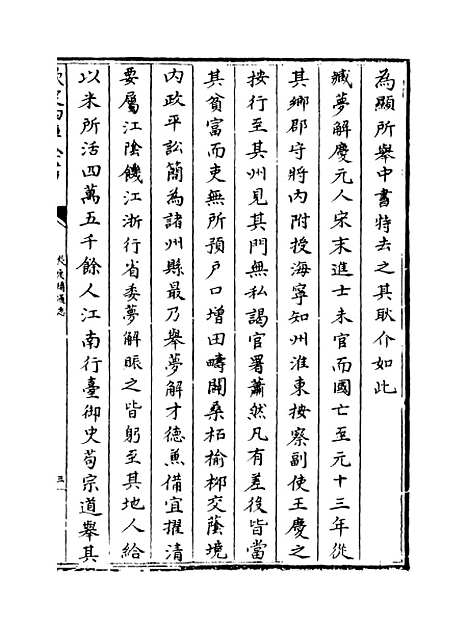 為顯所舉中書特去之其耿介如此
臧夢解慶元人宋末進士未官而國亡至元十三年從
其鄉郡守將內附授海寧知州淮東按察副使王慶之
按行至其州見其門無私謁官署蕭然凡有差後皆當
其貧富而吏無所預戶口增田疇闢桑柘榆柳交蔭境
內政平訟簡為諸州縣最乃舉夢解才德兼備宜擢清
要屬江陰饑江浙行省委夢解賑之皆躬至其地人給
以米所活四萬五千餘人江南行臺御史苟宗道舉其
欽定四庫全書
欽定續通志